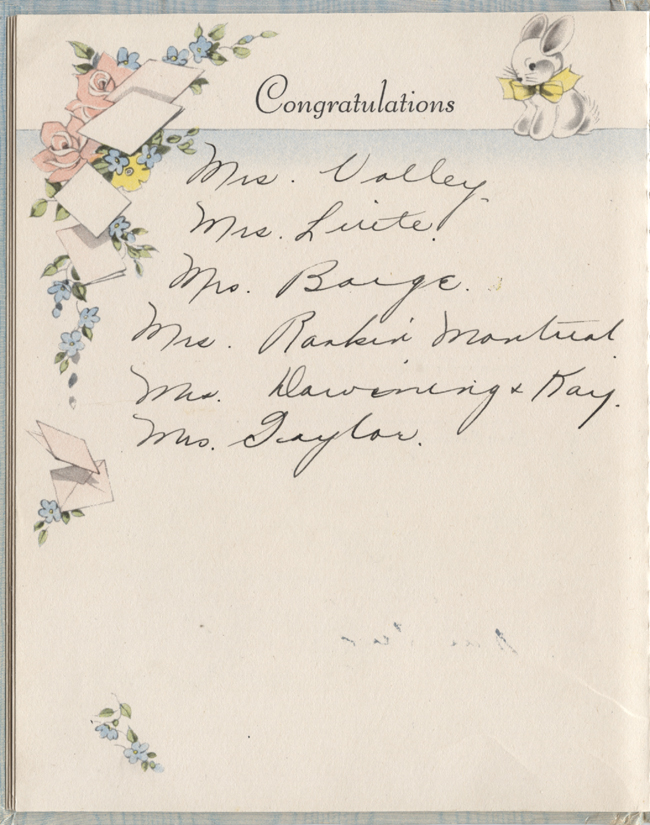 Congratulations
Mrs. Volley.
Mrs.
Mrs. Barge.
Mrs. Rankin Montreal
Mrs. Dawining & Kay.
Mrs. Taylor.